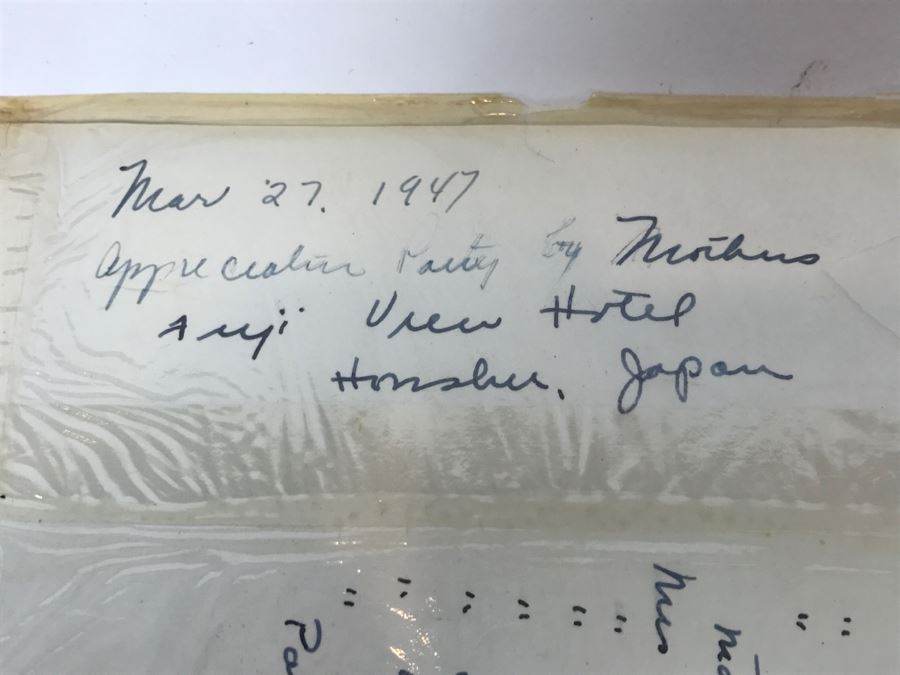 Mar 27. 1947
Appreciation Party by Mothers
Fuji View Hotel
Honshu, Japan
" " " " " " Mrs " "
Pa